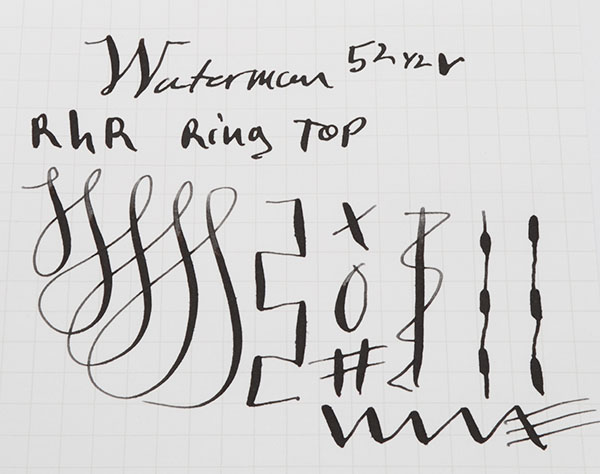 Waterman 52 1/2 V
RHR Ring Top
X
O
#